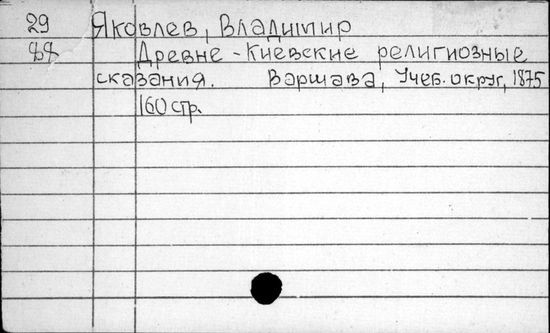 29 Яковлев, Владимир
88 Древне-Киевские религиозные
сказания. Варшава, Учеб. округ, 1875
160 стр.